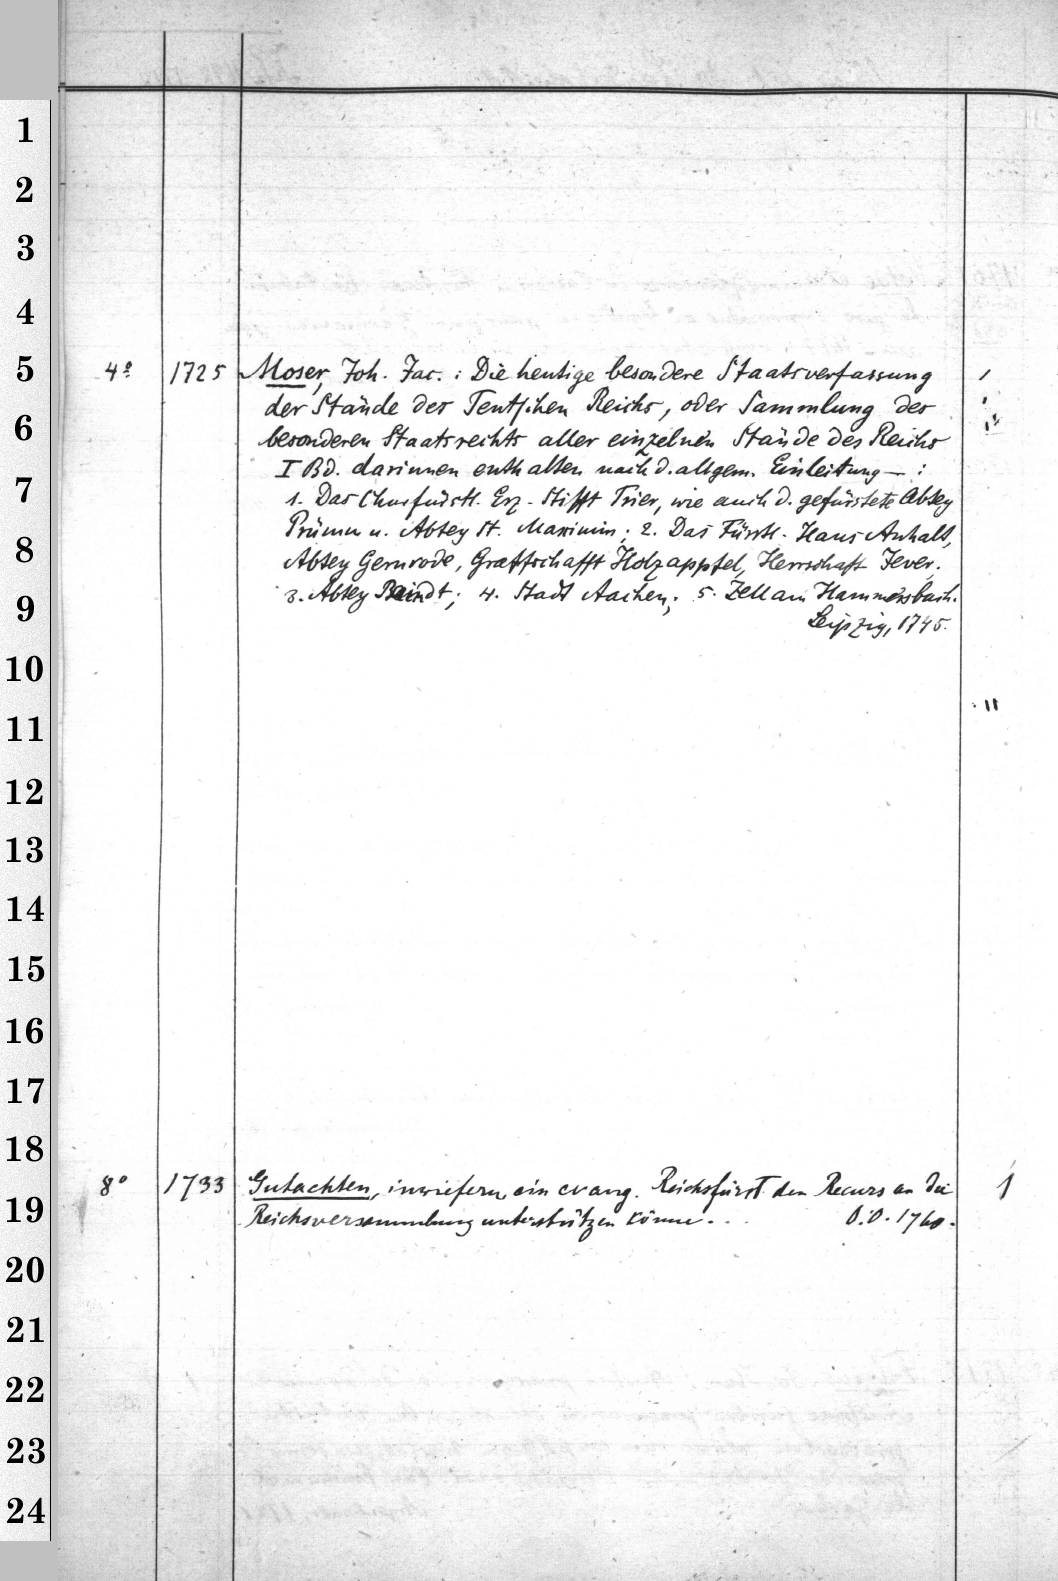 1
2
3
4
5
4º 1725 Moser, Joh. Jac. : Die heutige besondere Staatsverfassung
der Stände des Teutschen Reichs, oder Sammlung des
6
besonderen Staatsrechts aller einzelnen Stände des Reichs
I Bd. darinnen enthalten nach d. allgem. Einleitung — :
7
1. Das Churfürstl. Erz-Stifft Trier, wie auch d. gefürstete Abtey
Prümm u. Abtey St. Maximin; 2. Das Fürstl. Haus Anhalt,
8
Abtey Gernrode, Graffschafft Holzappfel, Herrschaft Jever.
9
3. Abtey Baindt; 4. Stadt Aachen; 5. Zell am Hammersbach.
Leipzig, 1745.
10
11
12
13
14
15
16
17
18
8º 1733 Gutachten, inwiefern ein evang. Reichsfürst den Recurs an die 1
19
Reichsversammlung unterstützen könne. . . O.O. 1760.
20
21
22
23
24